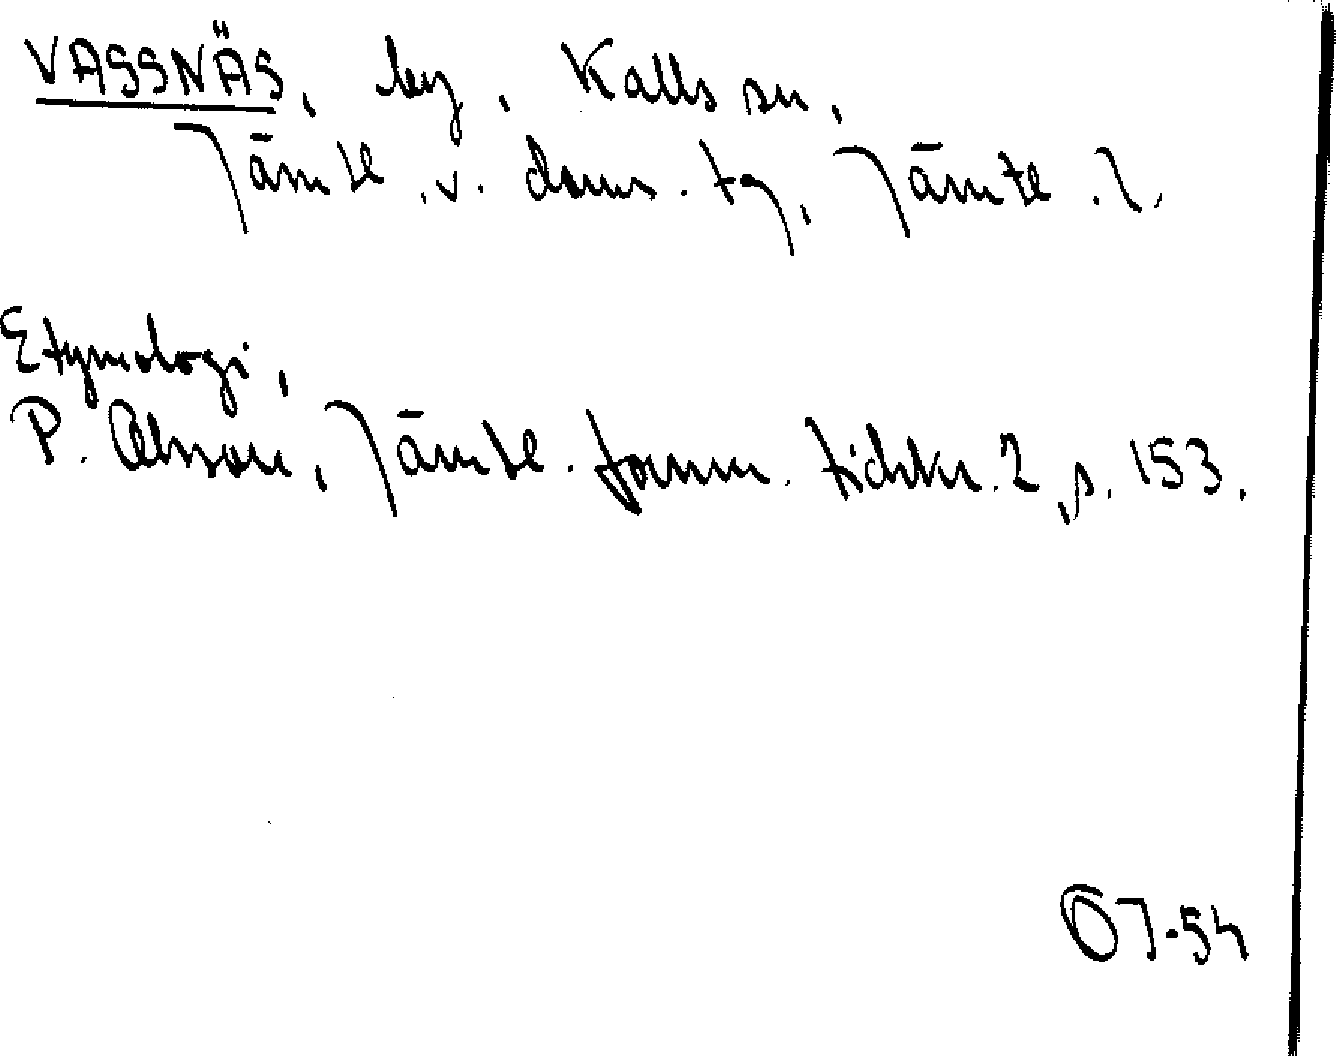 VASSNÄS, by, Kalls sn,
Jämtl. v. doms. tg, Jämtl. l.
Etymologi,
P. Olsson, Jämtl. fornm. tidskr. 2, s. 153.
OJ-54